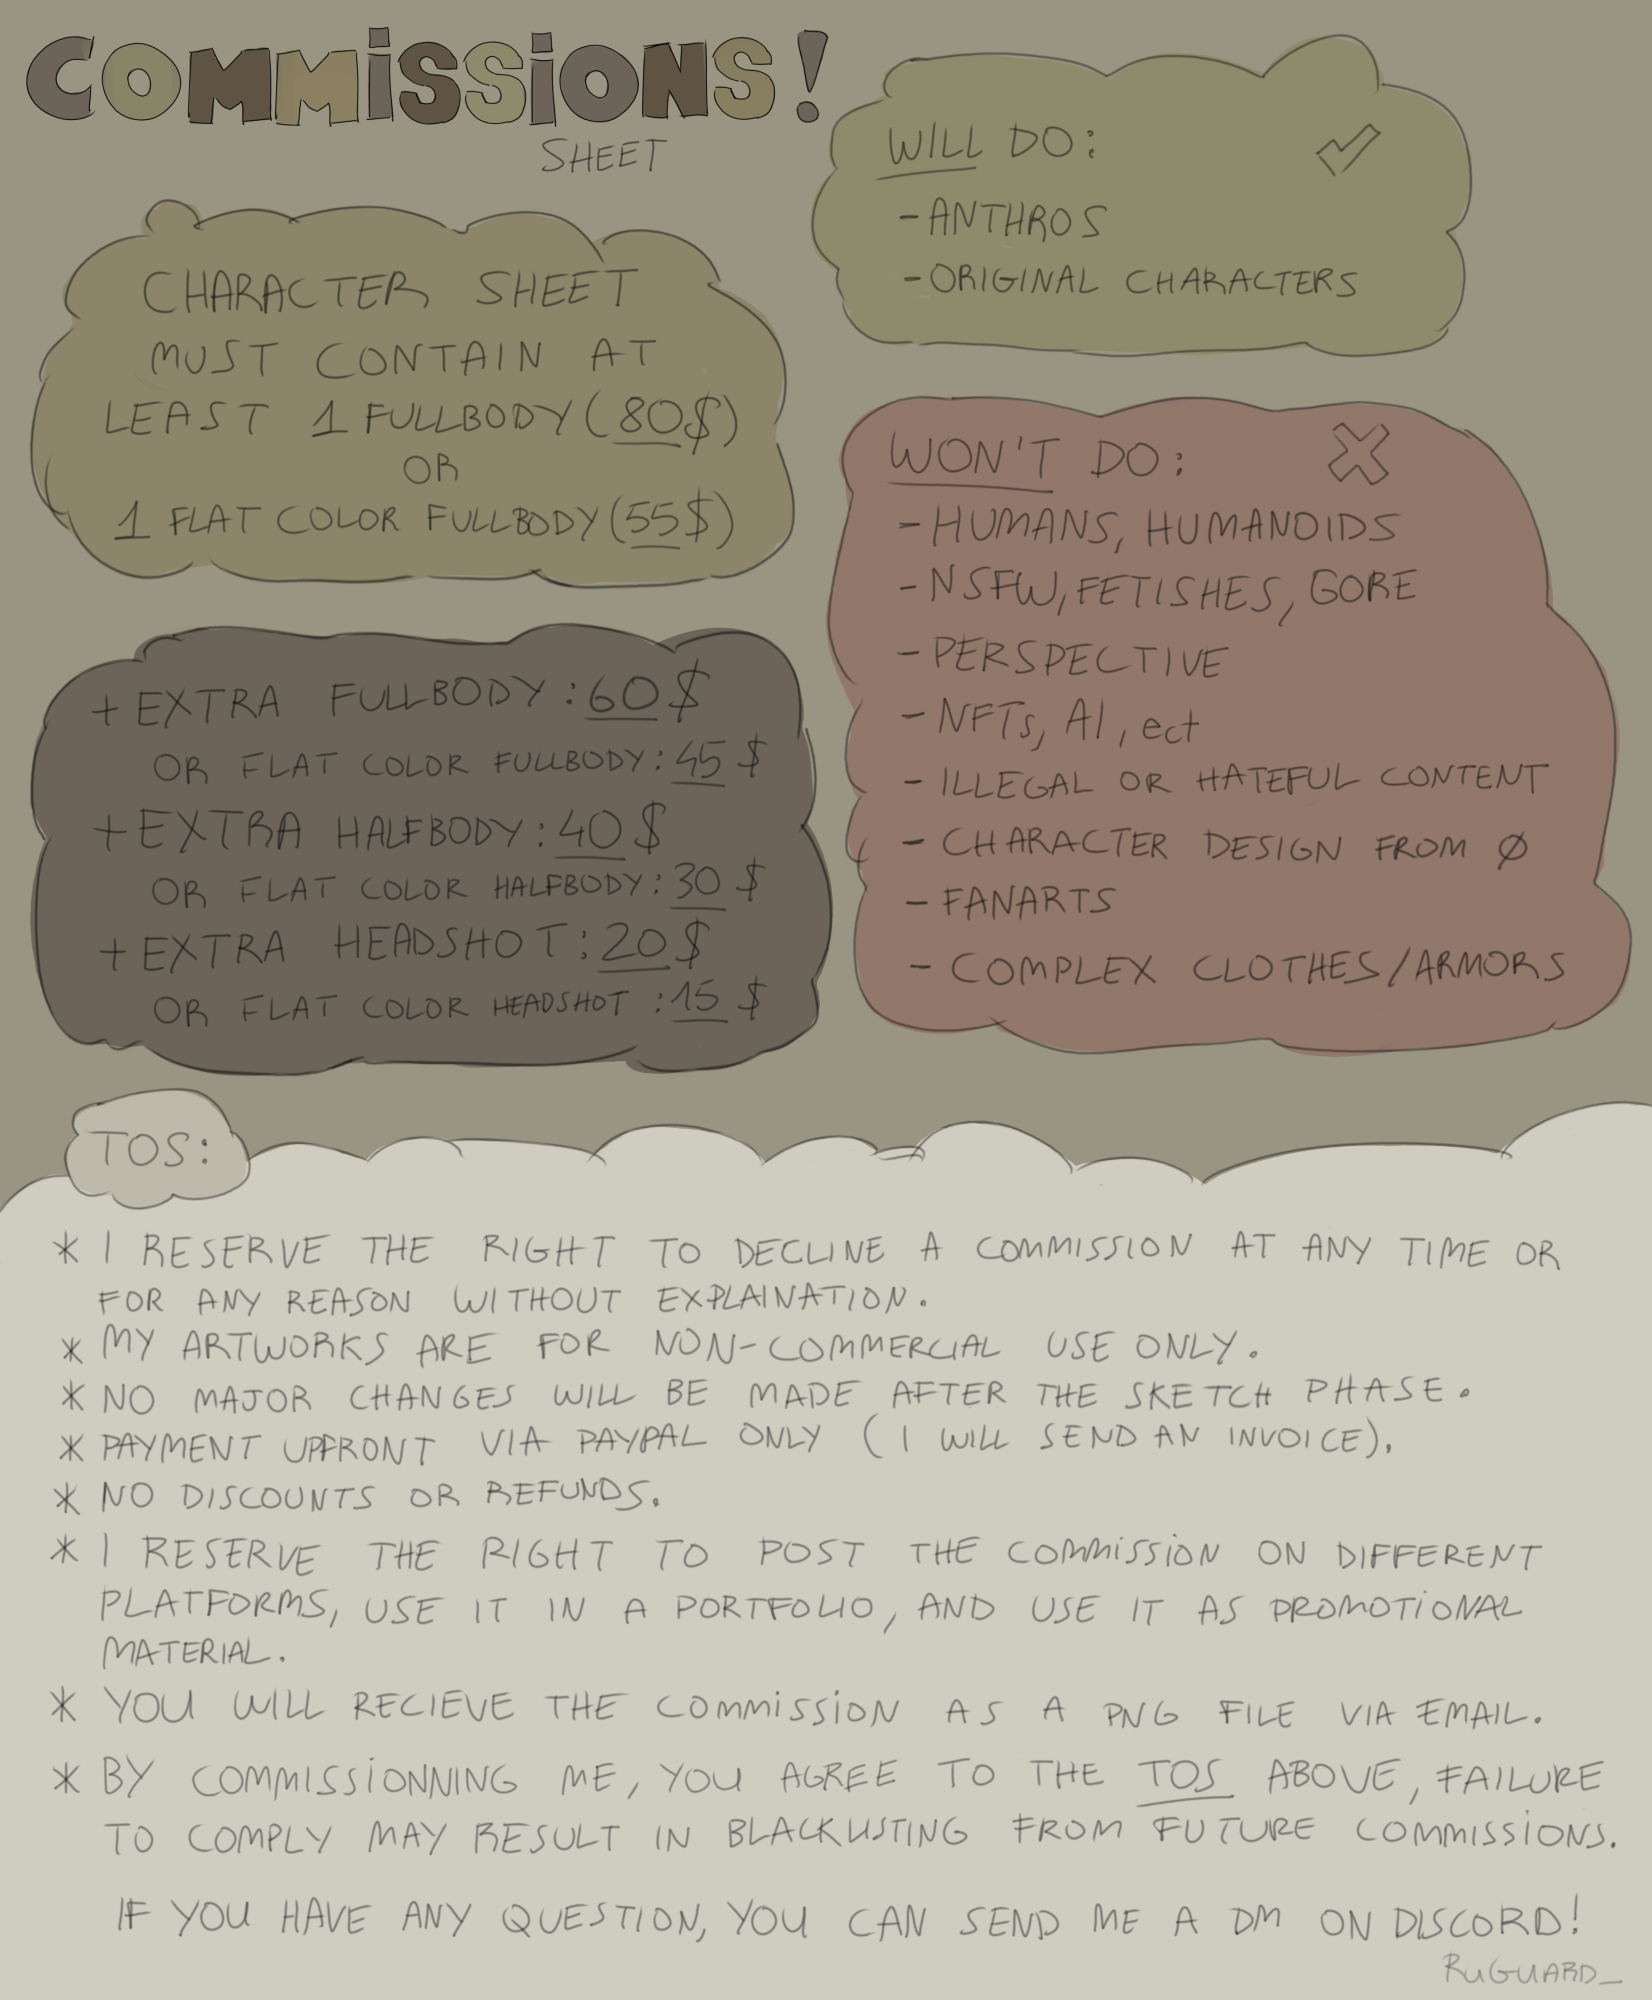 COMMISSIONS!
SHEET
CHARACTER SHEET
MUST CONTAIN AT
LEAST 1 FULLBODY (80$)
OR
1 FLAT COLOR FULLBODY (55$)
+ EXTRA FULLBODY : 60$
OR FLAT COLOR FULLBODY : 45 $
+ EXTRA HALFBODY : 40 $
OR FLAT COLOR HALFBODY : 30 $
+ EXTRA HEADSHOT : 20 $
OR FLAT COLOR HEADSHOT : 15 $
WILL DO: ✓
- ANTHROS
- ORIGINAL CHARACTERS
WON'T DO: ✗
- HUMANS, HUMANOIDS
- NSFW, FETISHES, GORE
- PERSPECTIVE
- NFTs, AI, ect
- ILLEGAL OR HATEFUL CONTENT
- CHARACTER DESIGN FROM Ø
- FANARTS
- COMPLEX CLOTHES/ARMORS
TOS:
* I RESERVE THE RIGHT TO DECLINE A COMMISSION AT ANY TIME OR
FOR ANY REASON WITHOUT EXPLAINATION.
* MY ARTWORKS ARE FOR NON-COMMERCIAL USE ONLY.
* NO MAJOR CHANGES WILL BE MADE AFTER THE SKETCH PHASE.
* PAYMENT UPFRONT VIA PAYPAL ONLY (I WILL SEND AN INVOICE).
* NO DISCOUNTS OR REFUNDS.
* I RESERVE THE RIGHT TO POST THE COMMISSION ON DIFFERENT
PLATFORMS, USE IT IN A PORTFOLIO, AND USE IT AS PROMOTIONAL
MATERIAL.
* YOU WILL RECIEVE THE COMMISSION AS A PNG FILE VIA EMAIL.
* BY COMMISSIONNING ME, YOU AGREE TO THE TOS ABOVE, FAILURE
TO COMPLY MAY RESULT IN BLACKLISTING FROM FUTURE COMMISSIONS.
IF YOU HAVE ANY QUESTION, YOU CAN SEND ME A DM ON DISCORD!
RUGUARD_